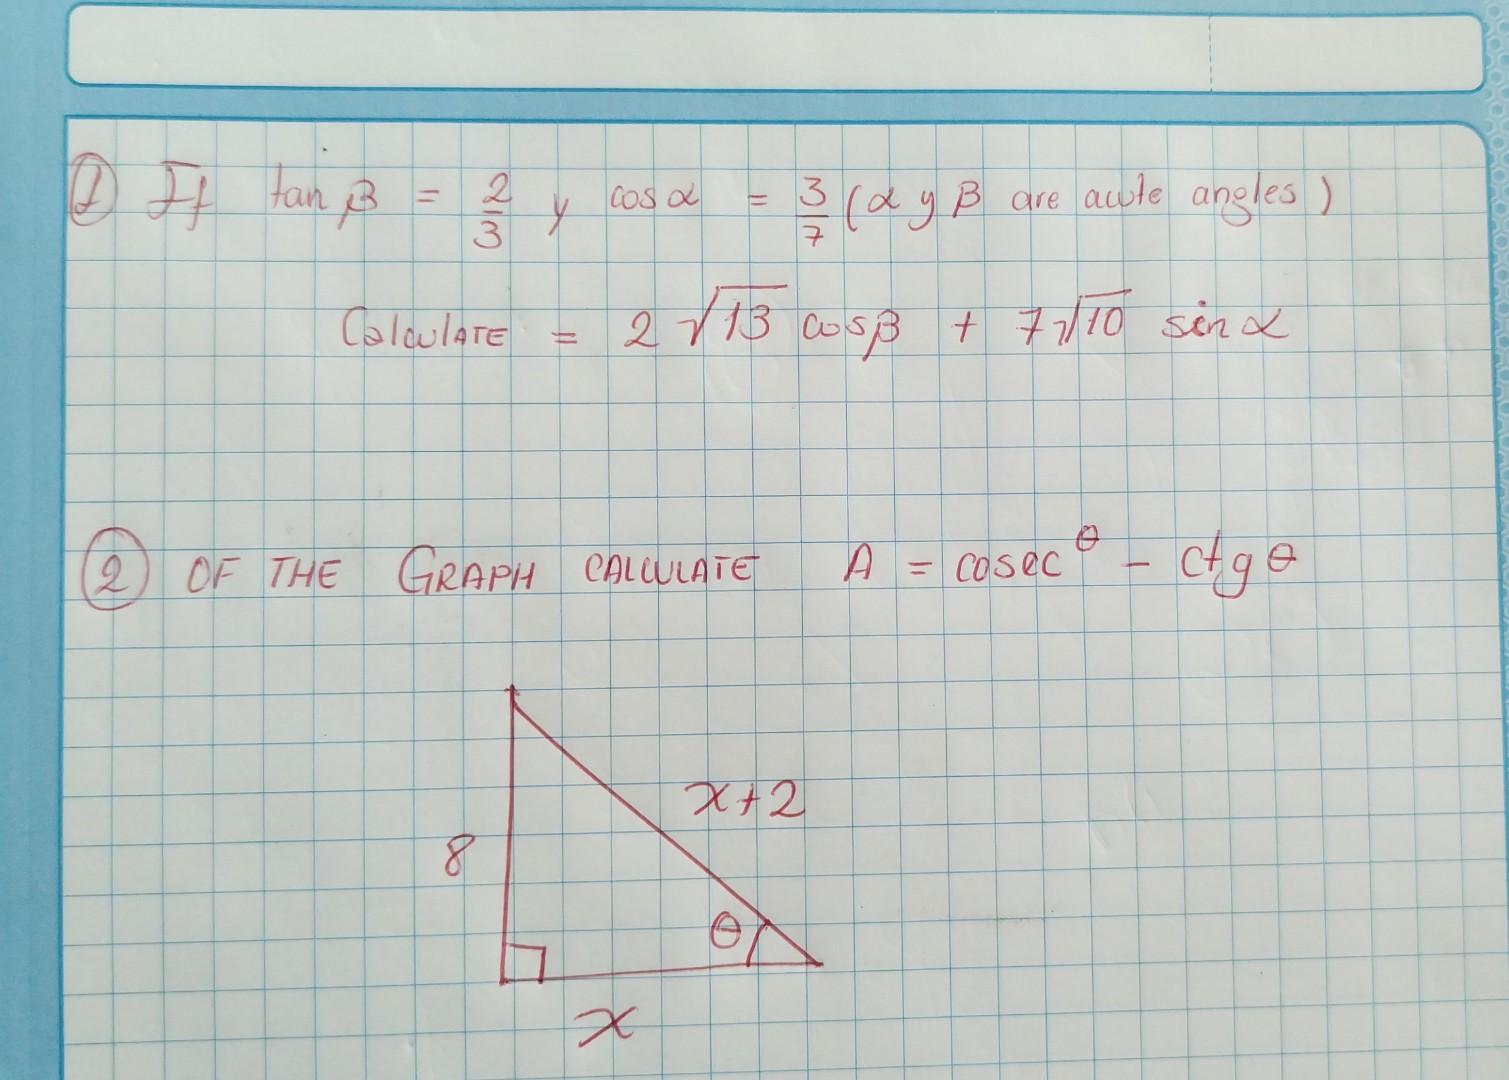 ① If tan β = 2/3 y cos α = 3/7 (α y β are acute angles)
Calculate = 2 √13 cos β + 7√10 sin α
② OF THE GRAPH CALCULATE A = cosec θ - ctg θ
x+2
8
θ
x